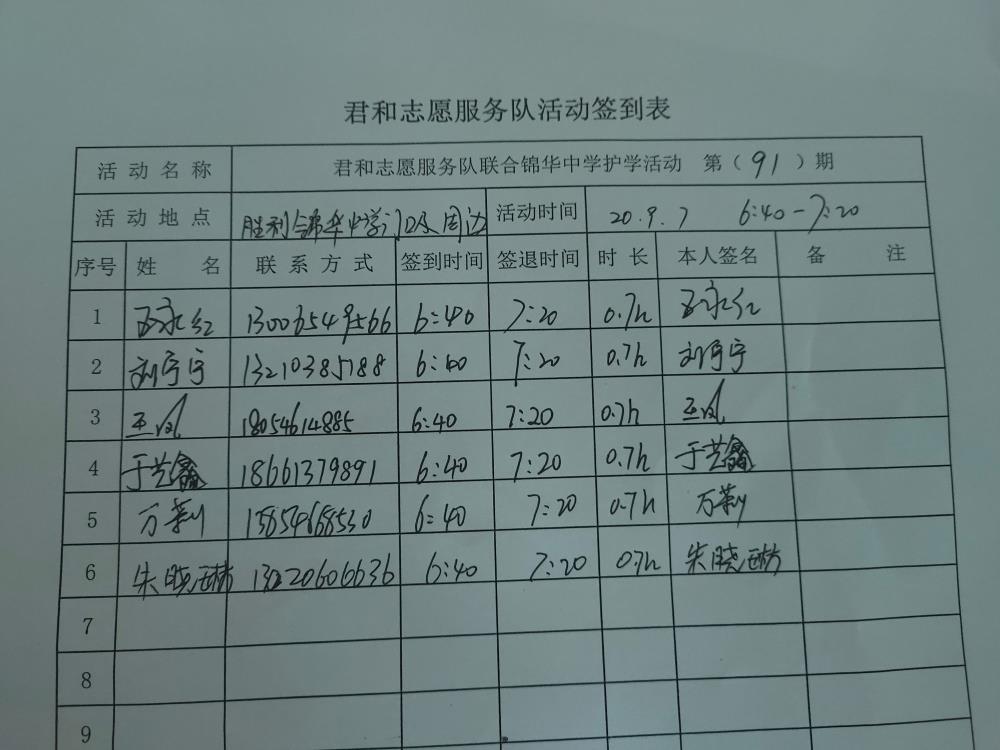 君和志愿服务队活动签到表
活动名称 君和志愿服务队联合锦华中学护学活动 第（91）期
活动地点 胜利锦华中学门口及周边 活动时间 20.9.7 6:40-7:20
序号 姓名 联系方式 签到时间 签退时间 时长 本人签名 备注
1 永红 13006549566 6:40 7:20 0.7h 永红
2 刘宇宁 13210385788 6:40 7:20 0.7h 刘宇宁
3 王凤 18054614885 6:40 7:20 0.7h 王凤
4 于芸鑫 18661379891 6:40 7:20 0.7h 于芸鑫
5 万莉 15854668530 6:40 7:20 0.7h 万莉
6 朱晓琳 13220606636 6:40 7:20 0.7h 朱晓琳
7
8
9